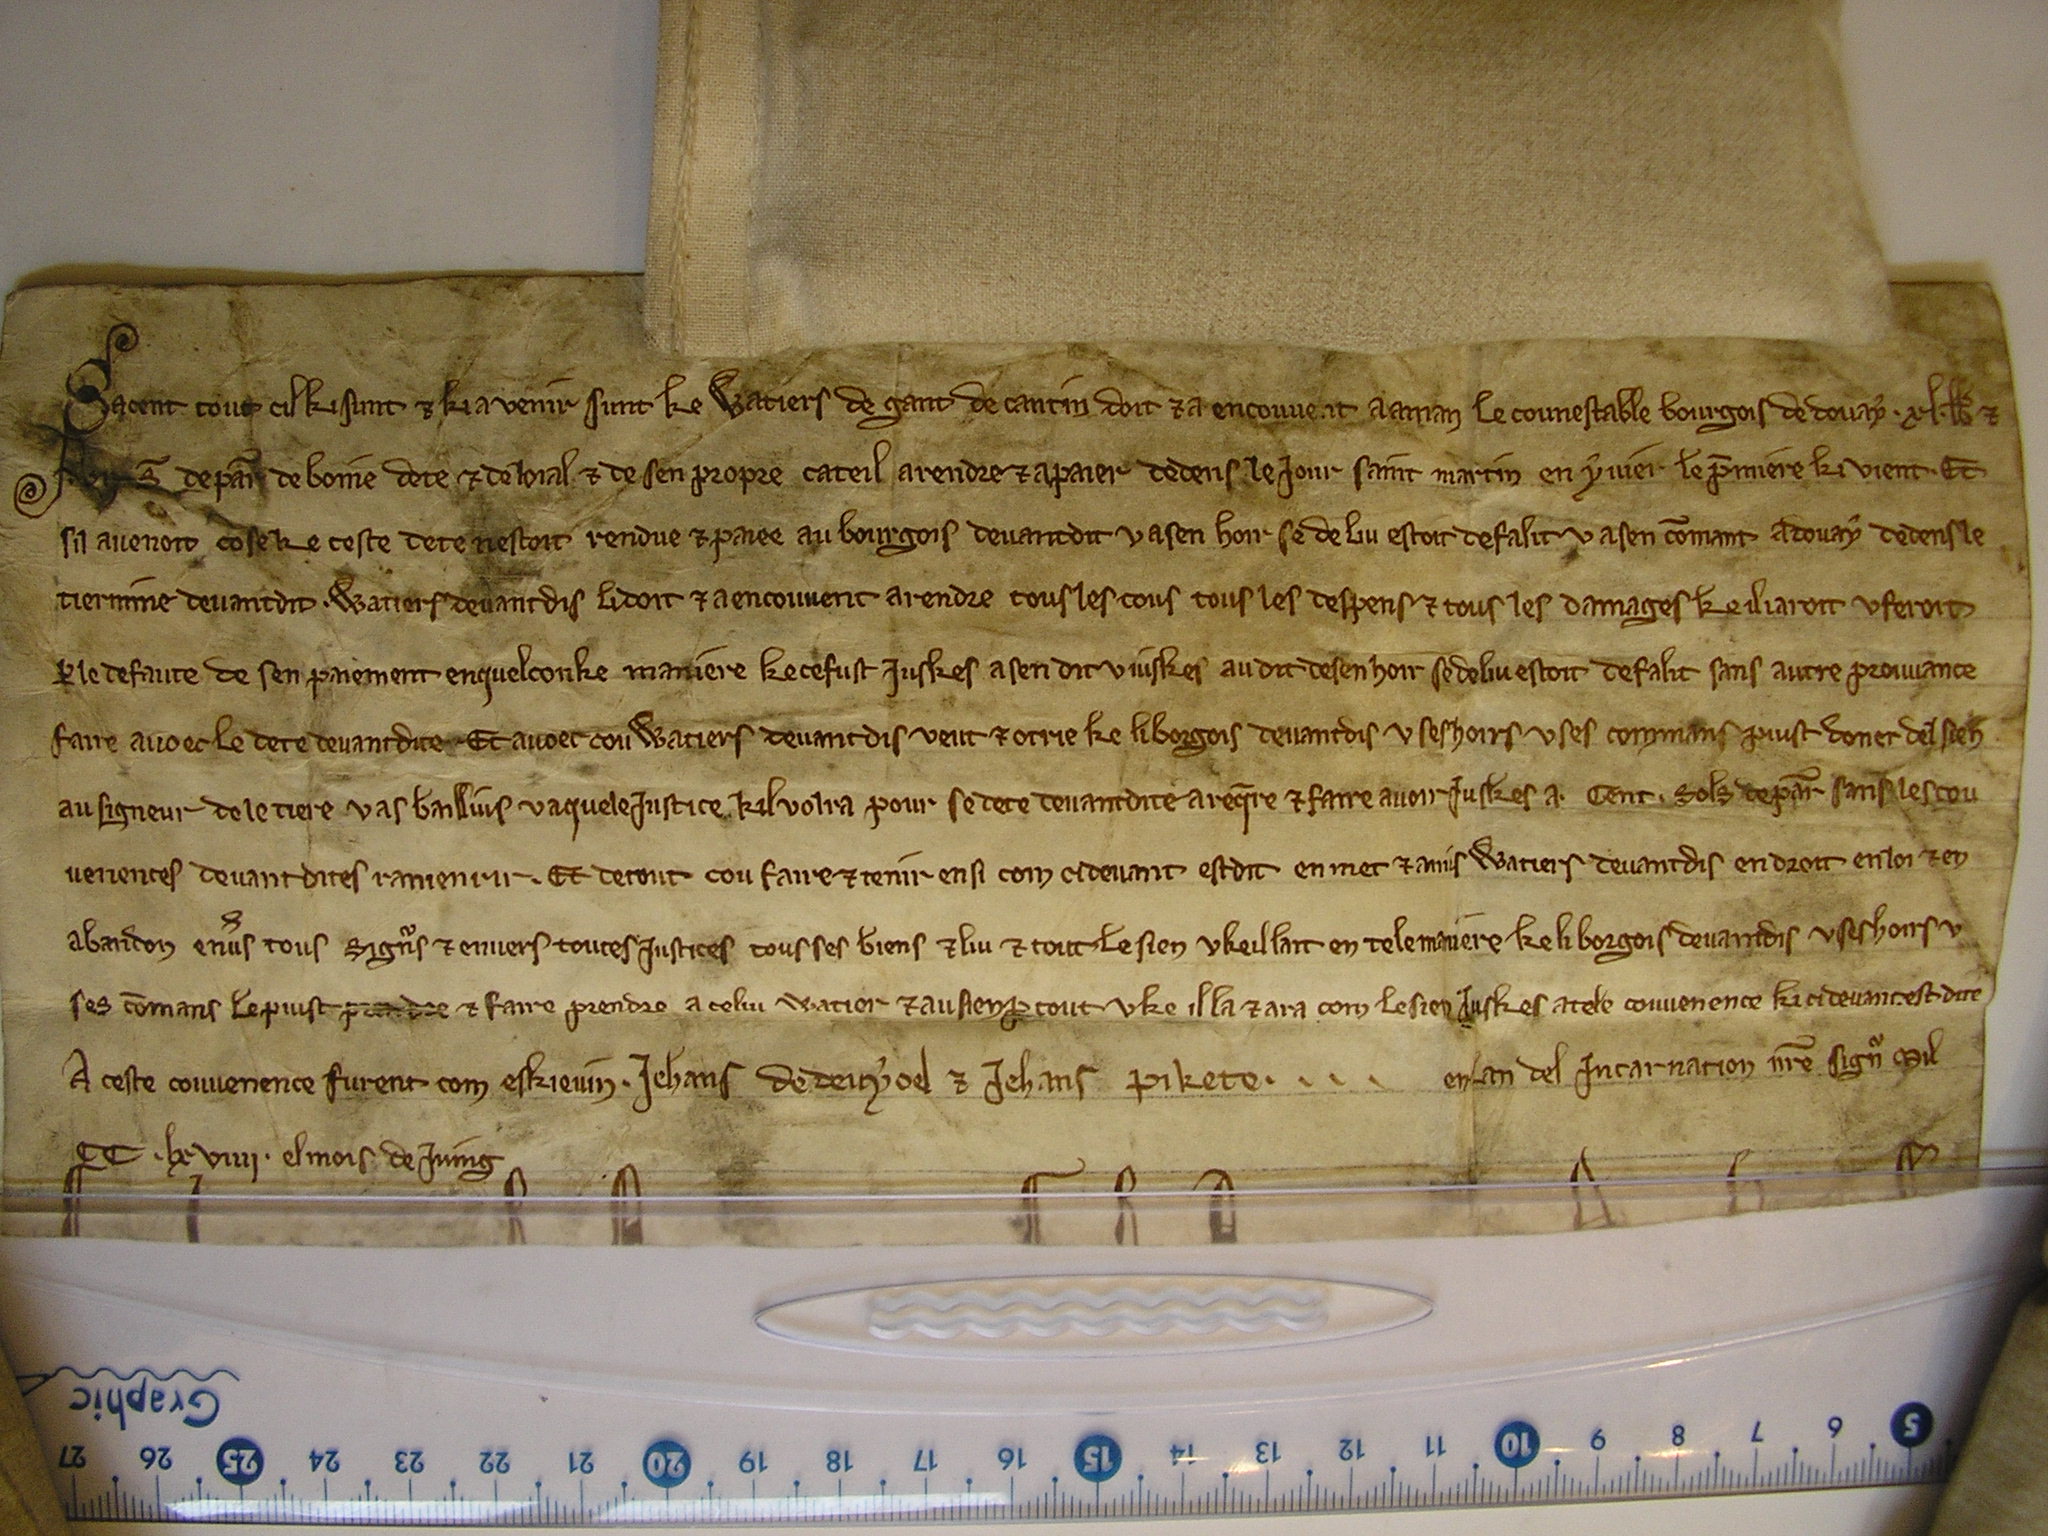 Sacent tout cil ki sunt ⁊ ki a venir sunt ke Watiers de gant de cantin doit ⁊ a encouvent a aman le counestable bourgois de douaẏ . xl . lb ⁊
de par̄ de boine dete ⁊ de loial ⁊ de sen propre cateil a rendre ⁊ a paier dedens le Jour saint martin en ẏvier le p̄miere ki vient . Et
sil avenoit cose ke ceste dete nestoit rendue ⁊ paiee au bourgois devantdit v a sen hoir se de lui estoit defalit v a sen c̄omant a douaẏ dedens le
tiermine devantdit . Watiers devantdis li doit ⁊ a encouvent a rendre tous les cous tous les despens ⁊ tous les damages ke il i aroit v feroit
ꝑ le defaute de sen paiement en quelconke maniere ke ce fust Juskes a sen dit v iuskes au dit de sen hoir se de lui estoit defalit sans autre prouvance
faire avoec le dete devantdite . Et avoec cou Watiers devantdis veut ⁊ otrie ke li borgois devantdis v ses hoirs v ses commans puist doner del sien
au signeur de le tiere v as bailluis v a quele Justice kil volra pour se dete devantdite a req̄re ⁊ faire avoir Juskes a . Cent . sols de par̄ sans les cou
venences devantdites ramenrir . Et de tout cou faire ⁊ tenir ensi com ci devant est dit en met ⁊ a mis Watiers devantdis en droit en loi ⁊ en
abandon env̄s tous sign̄s ⁊ envers toutes Justices tous ses biens ⁊ lui ⁊ tout le sien v ke il lait en tele maniere ke li borgois devantdis v ses hoirs v
ses c̄omans le puist prendre ⁊ faire prendre a celui watier ⁊ au sien ꝑ tout v ke il la ⁊ ara com le sien Juskes a tele couvenence ki ci devant est dite
A ceste couvenence furent com eskievin . Jehans de deuẏoel ⁊ Jehans pikete . . . . en lan del Incarnation nr̄e sign̄ Mil
CC . lx viiij . el mois de Juing
Graphic
27 26 25 24 23 22 21 20 19 18 17 16 15 14 13 12 11 10 9 8 7 6 5